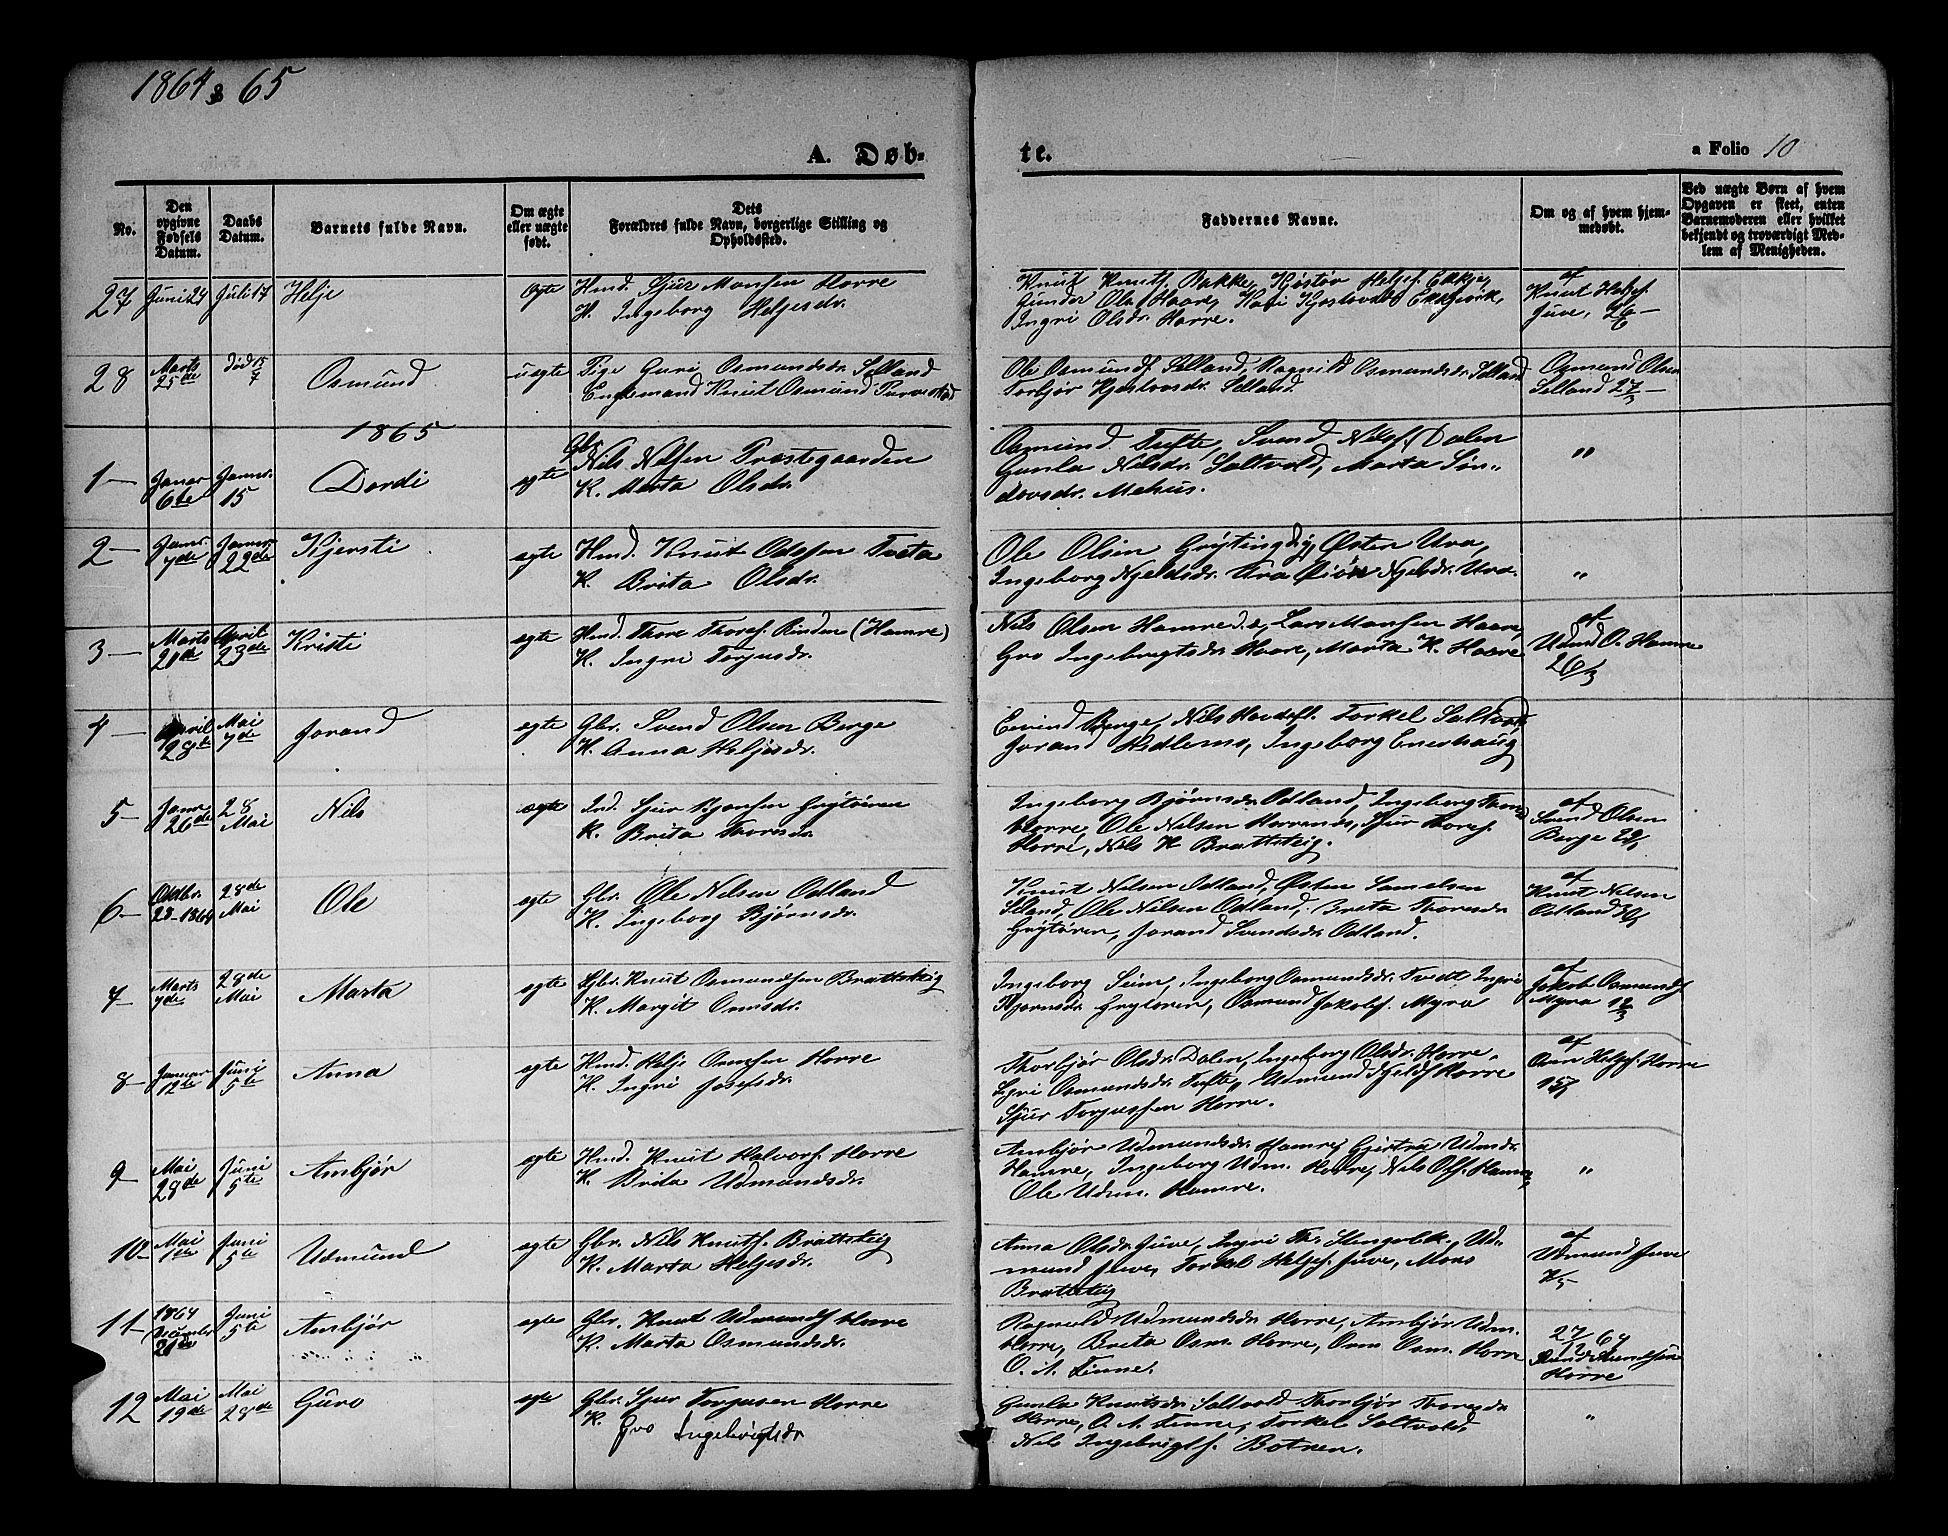 1864 & 65
A. Døb-
te.
a Folio 10
No.
Den opgivne Fødsels Datum.
Daabs Datum.
Barnets fulde Navn.
Om ægte eller uægte født.
Dets Forældres fulde Navn, borgerlige Stilling og Opholdssted.
Faddernes Navne.
Om og af hvem hjemmedøbt.
Ved uægte Børn af hvem Opgaven er skeet, enten Barnemoderen eller hvilket bekjendt og troværdigt Medlem af Menigheden.
27 Juni 24 Juli 17 Helje ægte Hmd. Sjur Monsen Horre
H. Ingeborg Heljesdr.
Knut Knuts. Bakke, Kjøstøv Heljes. Eikje,
Gunder Ols. Haare, Kari Kjostovsdr
Ingri Olsdr. Horre.
af
Knut Heljes.
Juve, 26/6
28 Marts 25de død 15/7 Osmund uægte Pige Guri Osmundsdr. Selland
Ungkarl Knut Osmund
Ole Osmunds. Selland, Ragnild Osmundsdr. Selland
Torbjør Kjostovsdr. Selland.
Osmund Olsen
Selland 27/3
1865
1 Januar 6te Januar. 15 Dordi ægte Nils Nilsen Præstegaarden
K. Marta Olsdr.
Osmund Tufte, Svend Nilss. Dalen
Gunla Nilsdr. Saltvold, Marta Søn-
dovsdr. Mehus.
"
2 Janr. 7de Januar 22de Kjersti ægte Hmd. Knut Odssen Tveta
K. Brita Olsdr.
Ole Olsen Grytingli, Østen Ura,
Ingeborg Njeldsdr. Njelsdr. Ura.
"
3 Marts 21de April 23de Kristi ægte Hmd. Thore Thores. Rinden (Hamre)
K. Ingri Torjusdr.
Nils Olsen Hamre d.æ, Lars Monsen Haare,
Gro Ingebrigtsdr. Haare, Marta K. Haare
af
Udmund O. Hamre
26/3
4 April 28de Mai 7de Jorand ægte Gbr. Svend Olsen Berge
K. Anna Heljesdr.
Eivind Berge, Nils Torkel Saltvold,
Jorand Hedlemo, Ingeborg Eneshaug
5 Janr 26de 28 Mai Nils ægte Ind. Sjur Bjønsen Grytøren
K. Brita Thoresdr.
Ingeborg Bjørnsdr. Odland, Ingeborg
Horre, Ole Nilsen Horrends, Sjur Thores.
Horre, Nils K. Brattsteig.
af
Svend Olsen
Berge
6 Oktbr. 23-1864 28de Mai Ole ægte Gbr. Ole Nilsen Odland
K. Ingeborg Bjørnsdr.
Knut Nilsen Odland, Østen Samelsen
Seland, Ole Nilsen Odland, Brita Thoresdr.
Grytøren, Jorand Svendsdr. Odland.
af
Knut Nilsen
Odland
7 Marts 7de 28de Mai Marta ægte Gbr. Knut Osmundsen Brattsteig
K. Margit Ormsdr.
Ingeborg Seim, Ingeborg Osmundsdr. Tvedt Ingri
Bjørnsdr. Grytøren, Osmund Jakobs. Myra
af
Jakob Osmunds
Myra 12/3
8 Januar 12te Juni 5te Anna ægte Hmd. Helje Ormsen Horre
K. Ingri Josefsdr.
Thorbjør Olsdr. Dalen, Ingeborg Olsdr. Horre,
Osmundsdr. Tufte, Udmund Njelds. Horre
Sjur Torjussen Horre.
af
Orm Heljes. Horre
9 Mai 28de Juni 5te Ambjør ægte Hmd. Knut Halvors. Horre
K. Brita Udmundsdr.
Ambjør Udmundsdr. Hamre, Gjertru Udmdr.
Hamre, Ingeborg Udm. Horre, Nils Ols. Hamre,
Ole Udm. Hamre.
"
10 Mai 1de Juni 5te Udmund ægte Gbr. Nils Knuts. Brattsteig
K. Marta Heljesdr.
Anna Olsdr. Juve, Ingri Th. Ud-
mund Juve, Torkel Heljes. Juve, Mons
Brattsteig
af
Udmund Juve
7/5
11 1864 December 21de Juni 5te Ambjør ægte Gbr. Knut Udmunds Horre
K. Marta Osmundsdr.
Ragnild Udmundsdr. Horre, Ambjør Udm.
Horre, Brita Osm. Horre, Orm Osm. Horre
O. A. Finne.
27/12 64
Horre
12 Mai 19de Mai 28de Guro ægte Gbr. Sjur Torjusen Horre
K. Gro Ingebrigtsdr
Gunla Knutsdr. Saltvold Thorbjør Thoresdr.
Horre, O. A. Finne, Torkel Saltvold,
Nils Ingebrigts. Botnen.
"